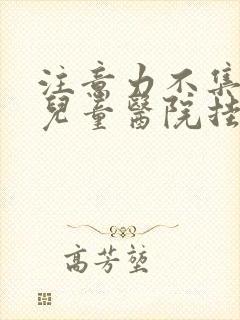 注意力不集
兒童醫院挂
高芳堃